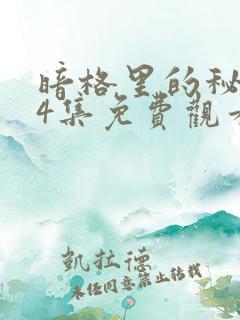 暗格里的秘
4集免費觀看
凱拉德
未经同意禁止转载